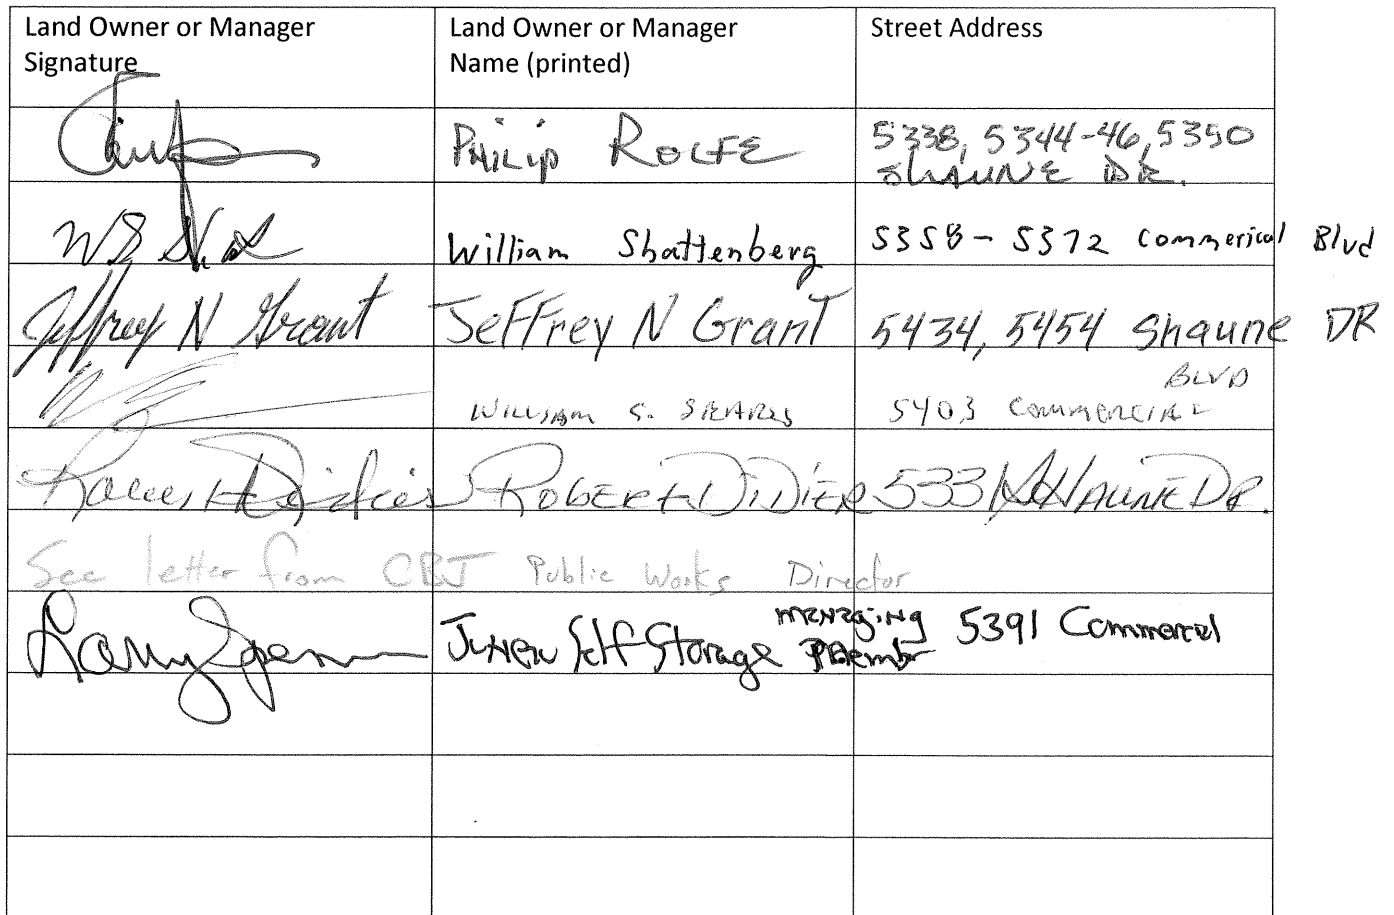 Land Owner or Manager
Signature
Land Owner or Manager
Name (printed)
Street Address
Philip ROLFE
5338, 5344-46, 5350
SHAUNE DR.
William Shattenberg
5358 - 5372 Commerical Blvd
Jeffrey N Grant
Jeffrey N Grant
5434, 5454 Shaune DR
WILLIAM S. SPEARS
BLVD
5403 COMMERCIAL
Robert Didier
ROBERT DIDIER
5331 SHAUNE DR.
See letter from CBJ Public Works Director
Larry Spencer
Juneau Self Storage
managing
member
5391 Commercial